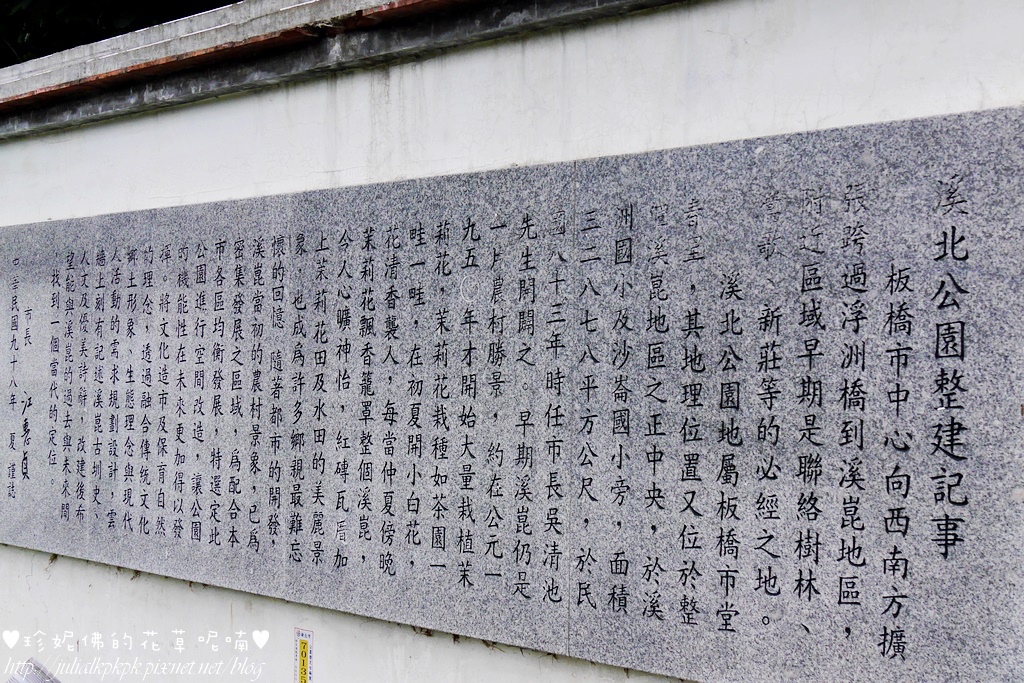 溪北公園整建記事
板橋市中心向西南方擴
張跨過浮洲橋到溪崑地區，
附近區域早期是聯絡樹林、
鶯歌、新莊等的必經之地。
溪北公園地屬板橋市堂
春里，其地理位置又位於整
個溪崑地區之正中央，於溪
洲國小及沙崙國小旁，面積
三二八七八平方公尺，於民
國八十三年時任市長吳清池
先生開闢之。早期溪崑仍是
一片農村勝景，約在公元一
九五〇年才開始大量栽植茉
莉花，茉莉花栽種如茶園一
畦一畦，在初夏開小白花，
花清香襲人，每當仲夏傍晚
茉莉花飄香籠罩整個溪崑，
令人心曠神怡，紅磚瓦厝加
上茉莉花田及水田的美麗景
象，也成為許多鄉親最難忘
懷的回憶。隨著都市的開發，
溪崑當初的農村景象，已為
密集發展之區域，為配合本
市各區均衡發展，特選定此
公園進行空間改造，讓公園
的機能性在未來更加得以發
揮。將文化造市及保育自然
的理念，透過融合傳統文化
鄉土形象、生態理念與現代
人活動的需求規劃設計，雲
牆上刻有記述溪崑古圳史、
人文及優美詩辭，改建後希
望能與溪崑的過去與未來間
，找到一個當代的定位。
市長 江惠貞
中華民國九十八年 夏 謹誌
70135
♥珍妮佛的花草呢喃♥
http://juliatkpkpk.pixnet.net/blog